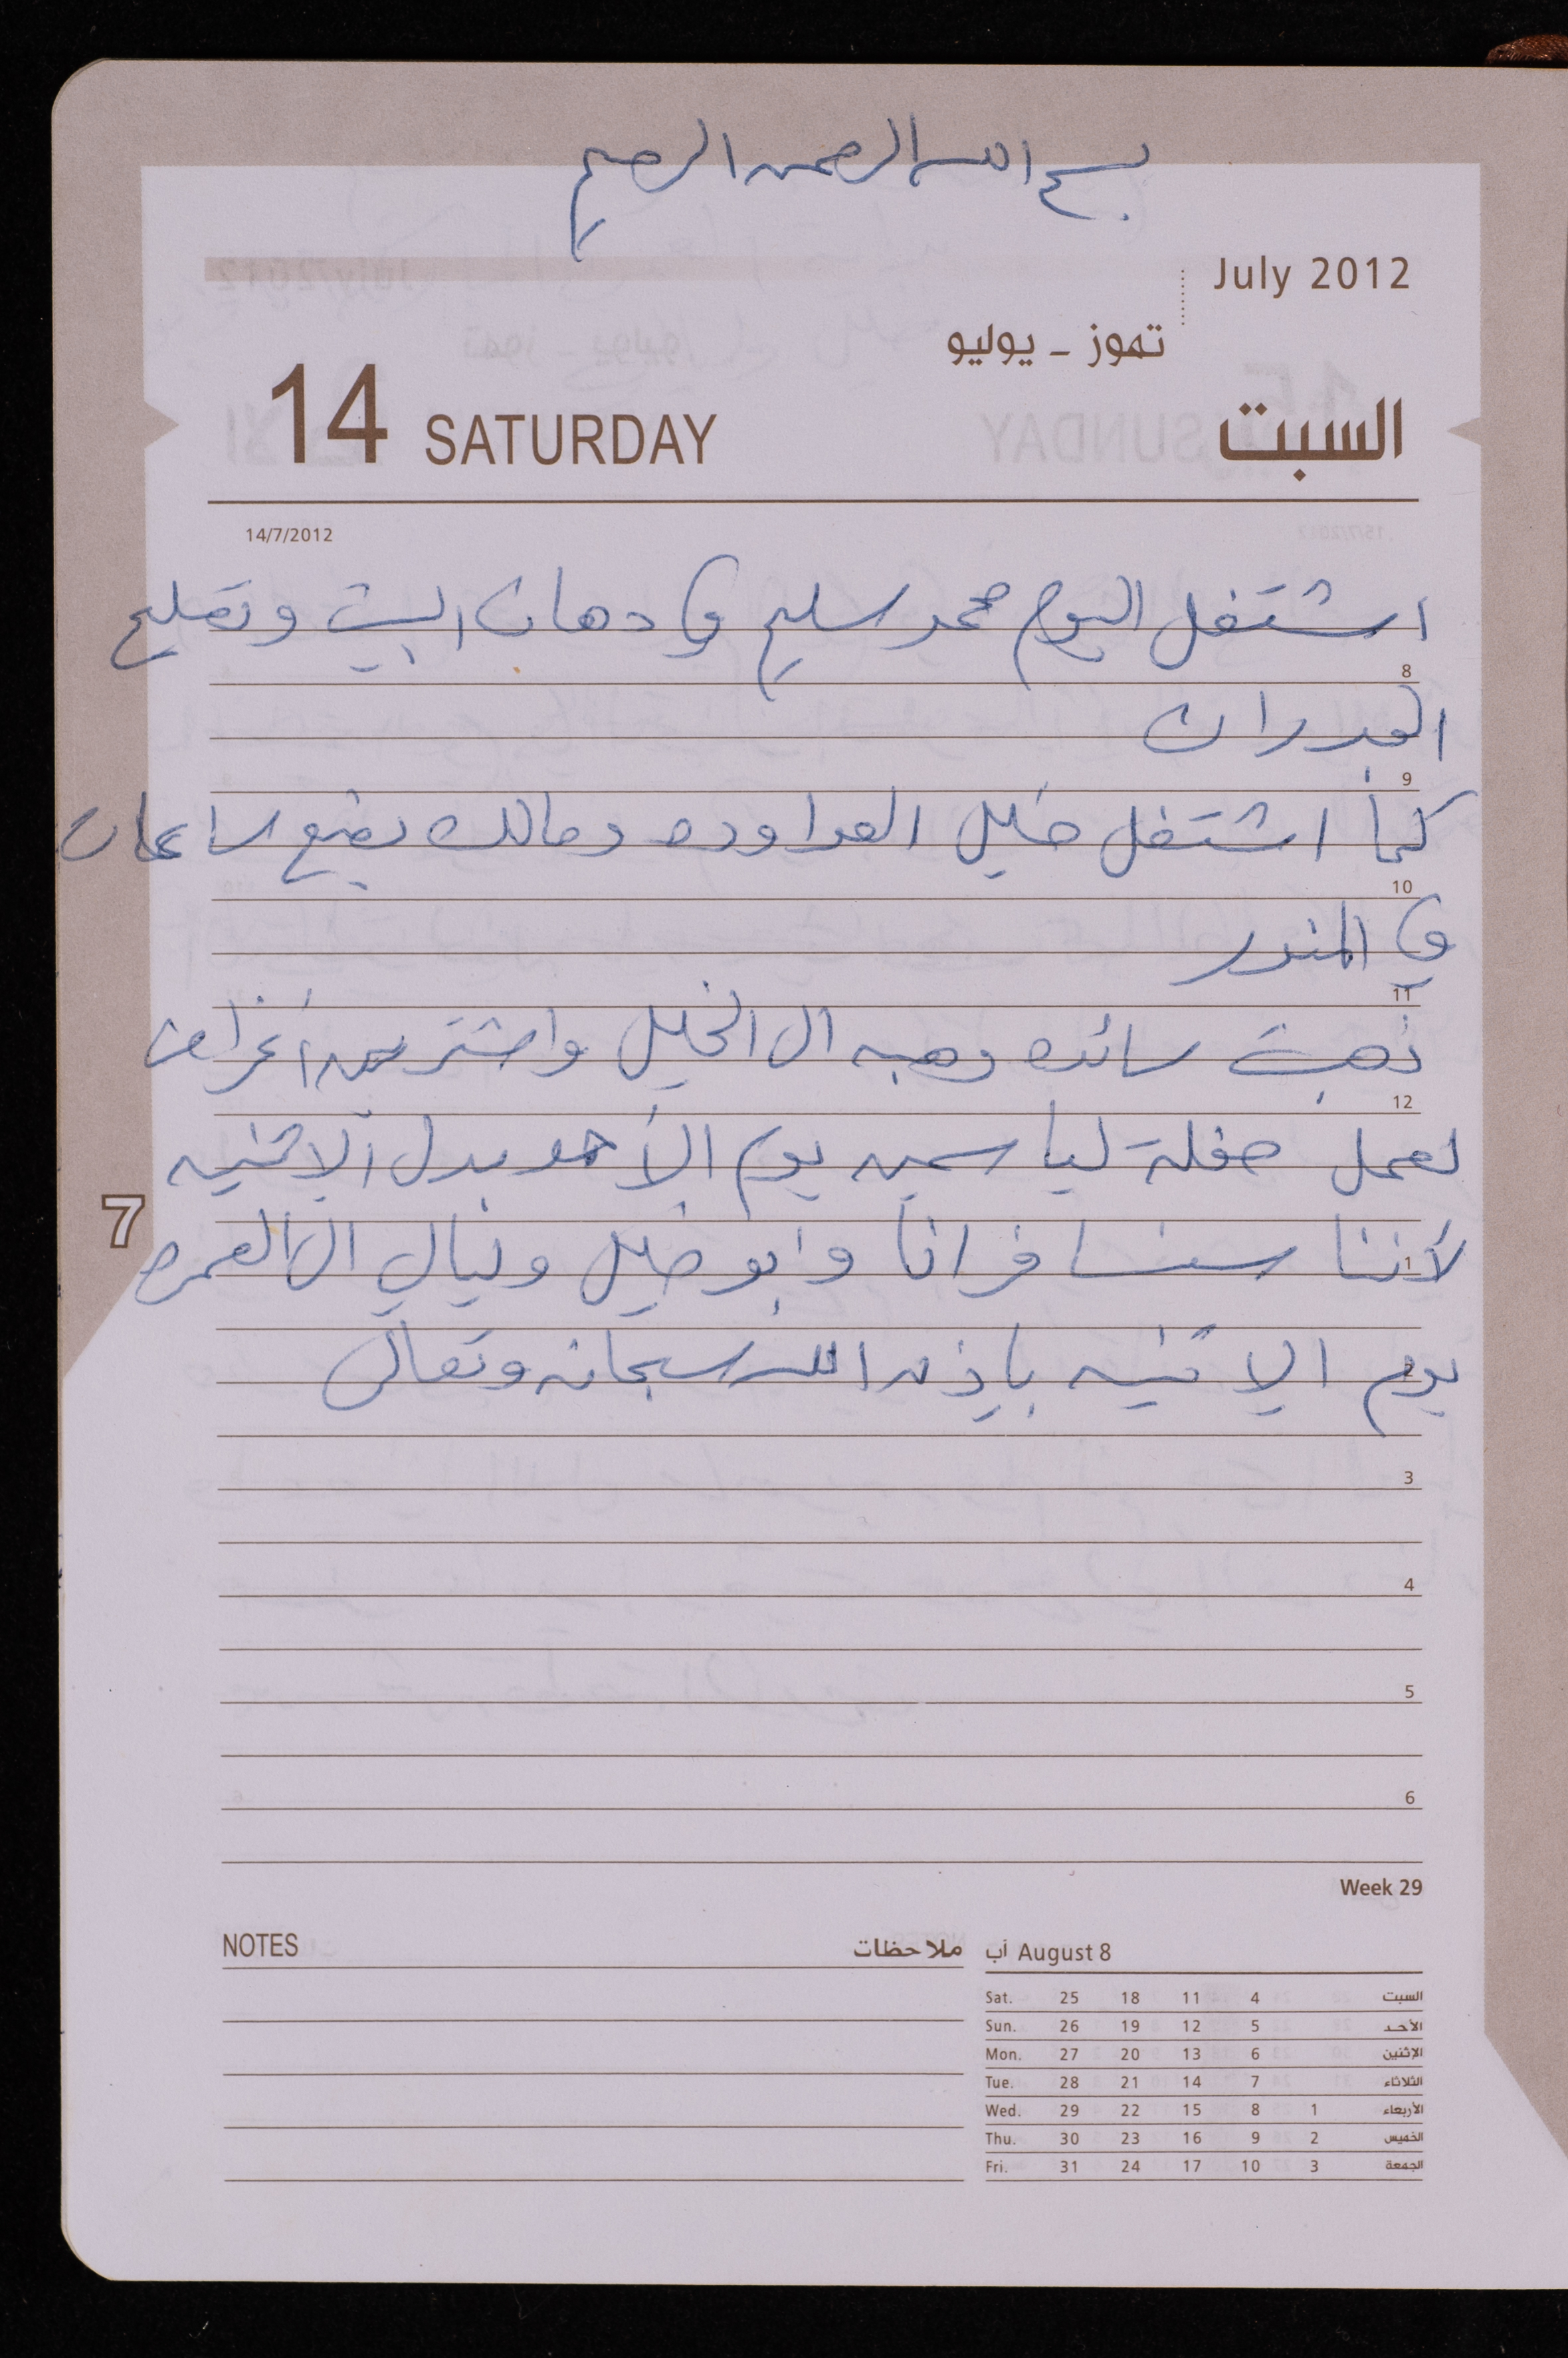 بسم الله الرحمن الرحيم
July 2012
تموز - يوليو
14 SATURDAY السبت
14/7/2012
اشتغل اليوم محمد سليم في دهان البيت وتصليح
8
الجدران
9
كما اشتغل خليل العداوده ومالك بضع ساعات
10
في البندر
11
ذهبت سائده وهبه الى الخليل واشترين أغراض
12
لعمل حفلة لياسمين يوم الأحد بدل الاثنين
7
لأننا سنسافر انا وابو خليل وليالي الى العمره
1
يوم الاثنين بإذن الله سبحانه وتعالى
3
4
5
6
Week 29
NOTES ملاحظات
آب August 8
Sat. 25 18 11 4 السبت
Sun. 26 19 12 5 الأحد
Mon. 27 20 13 6 الإثنين
Tue. 28 21 14 7 الثلاثاء
Wed. 29 22 15 8 1 الأربعاء
Thu. 30 23 16 9 2 الخميس
Fri. 31 24 17 10 3 الجمعة